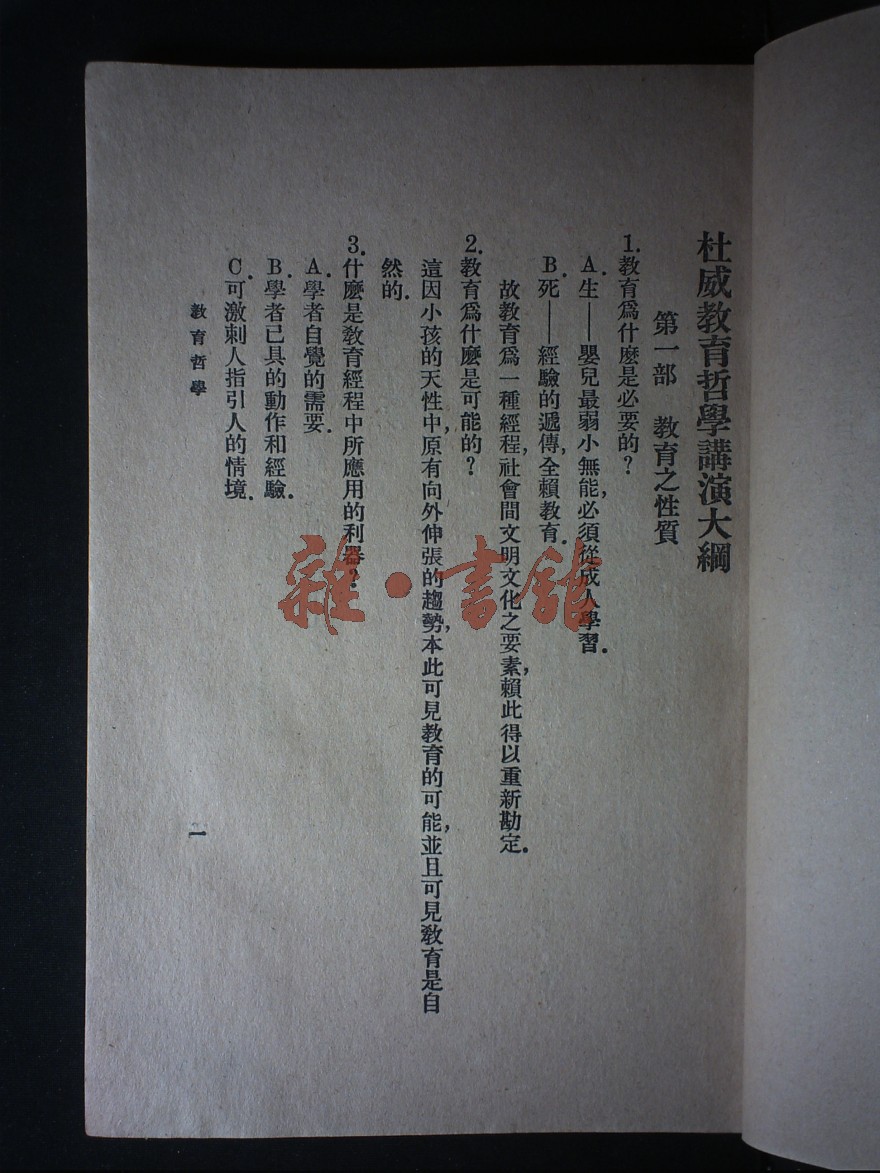 杜威教育哲學講演大綱
第一部　教育之性質
1. 教育爲什麽是必要的?
A. 生——嬰兒最弱小無能,必須從成人學習.
B. 死——經驗的遞傳,全賴教育.
故教育爲一種經程,社會間文明文化之要素,賴此得以重新勘定.
2. 教育爲什麽是可能的?
這因小孩的天性中,原有向外伸張的趨勢,本此可見教育的可能,並且可見教育是自
然的.
3. 什麽是教育經程中所應用的利器?
A. 學者自覺的需要.
B. 學者已具的動作和經驗.
C. 可激刺人指引人的情境.
教育哲學
一
雜·書館